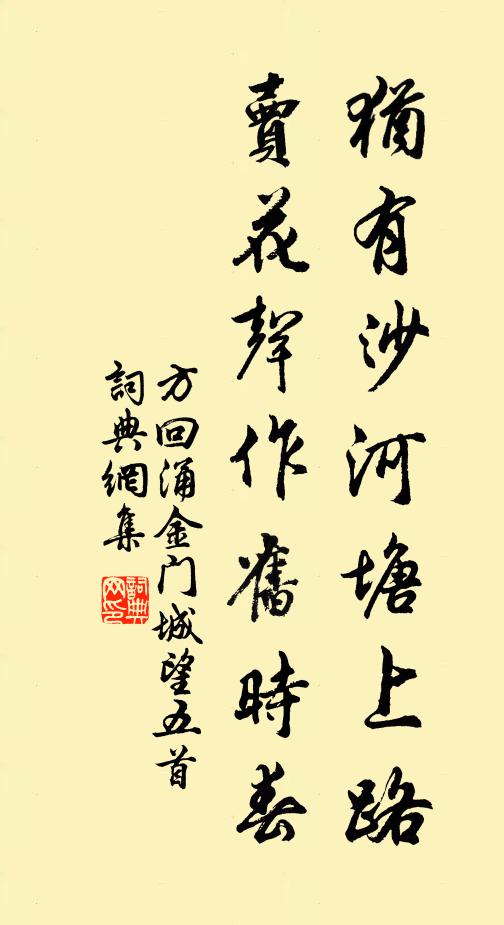 猶有沙河塘上路
賣花聲作舊時春
方回涌金门城望五首
詞典網集
詞典網印